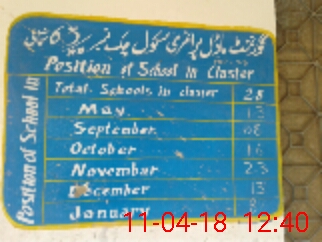 گورنمنٹ ماڈل پرائمری سکول چک نمبر
Position of School in Claster
Position of School in
Total Schools in claster 28
May 13
September 08
October 16
Novembar 23
December 13
January
11-04-18 12:40